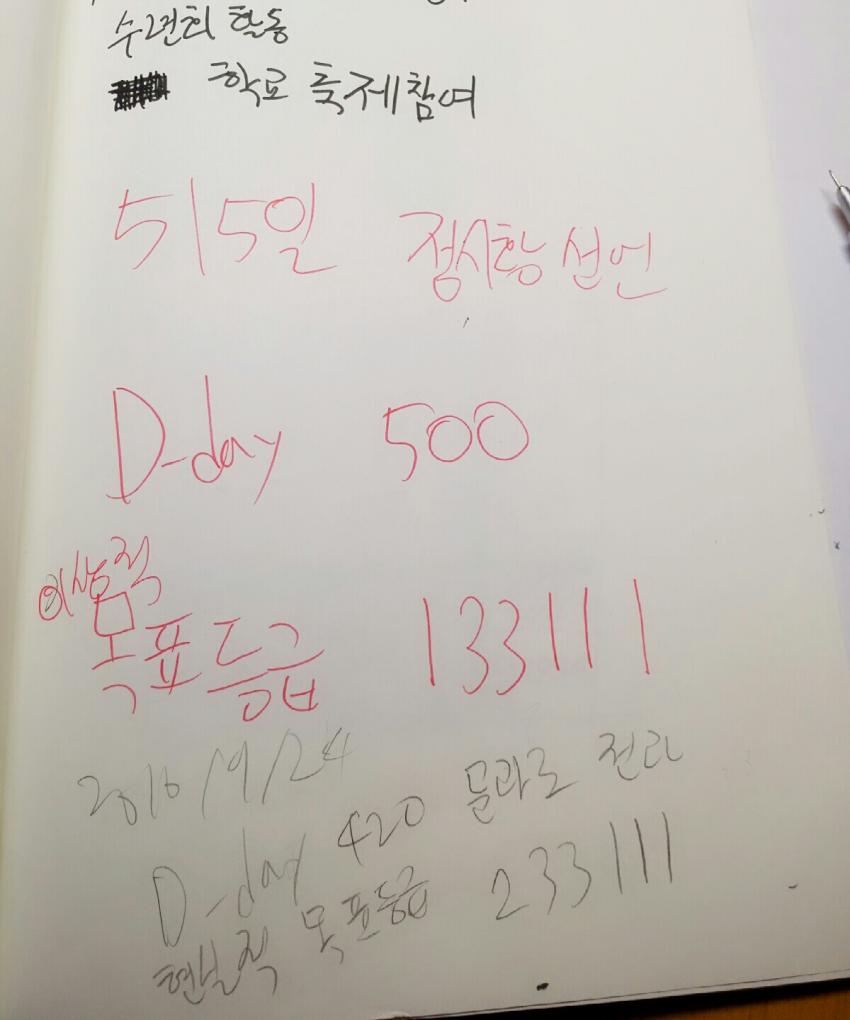 수련회 활동
학교 축제참여
515일 정시황 선언
D-day 500
이상적
목표등급 133111
2016/9/24
D-day 420 문과로 전과
현실적 목표등급 233111